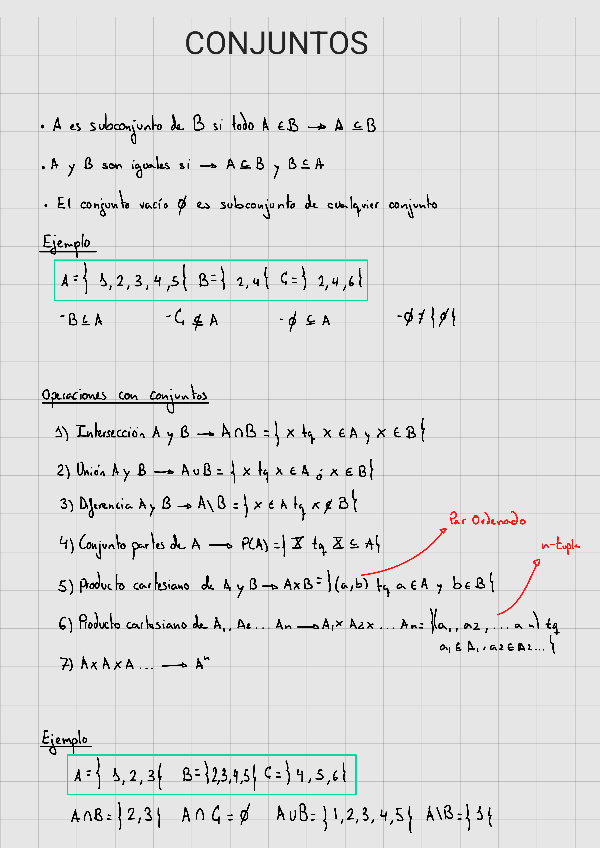 CONJUNTOS
• A es subconjunto de B si todo A ∈ B → A ⊆ B
• A y B son iguales si → A ⊆ B y B ⊆ A
• El conjunto vacío ∅ es subconjunto de cualquier conjunto
Ejemplo
A = { 1, 2, 3, 4, 5 } B = { 2, 4 } C = { 2, 4, 6 }
- B ⊆ A - C ⊄ A - ∅ ⊆ A - ∅ ≠ { ∅ }
Operaciones con conjuntos
1) Intersección A y B → A ∩ B = { x tq x ∈ A y x ∈ B }
2) Unión A y B → A ∪ B = { x tq x ∈ A ó x ∈ B }
3) Diferencia A y B → A \ B = { x ∈ A tq x ∉ B }
Par Ordenado
4) Conjunto partes de A → P(A) = { X tq X ⊆ A }
n-tupla
5) Producto cartesiano de A y B → A x B = { (a, b) tq a ∈ A y b ∈ B }
6) Producto cartesiano de A1, A2 ... An → A1 x A2 x ... An = { (a1, a2, ... an) tq
a1 ∈ A1, a2 ∈ A2 ... }
7) A x A x A ... → Aⁿ
Ejemplo
A = { 1, 2, 3 } B = { 2, 3, 4, 5 } C = { 4, 5, 6 }
A ∩ B = { 2, 3 } A ∩ C = ∅ A ∪ B = { 1, 2, 3, 4, 5 } A \ B = { 1 }